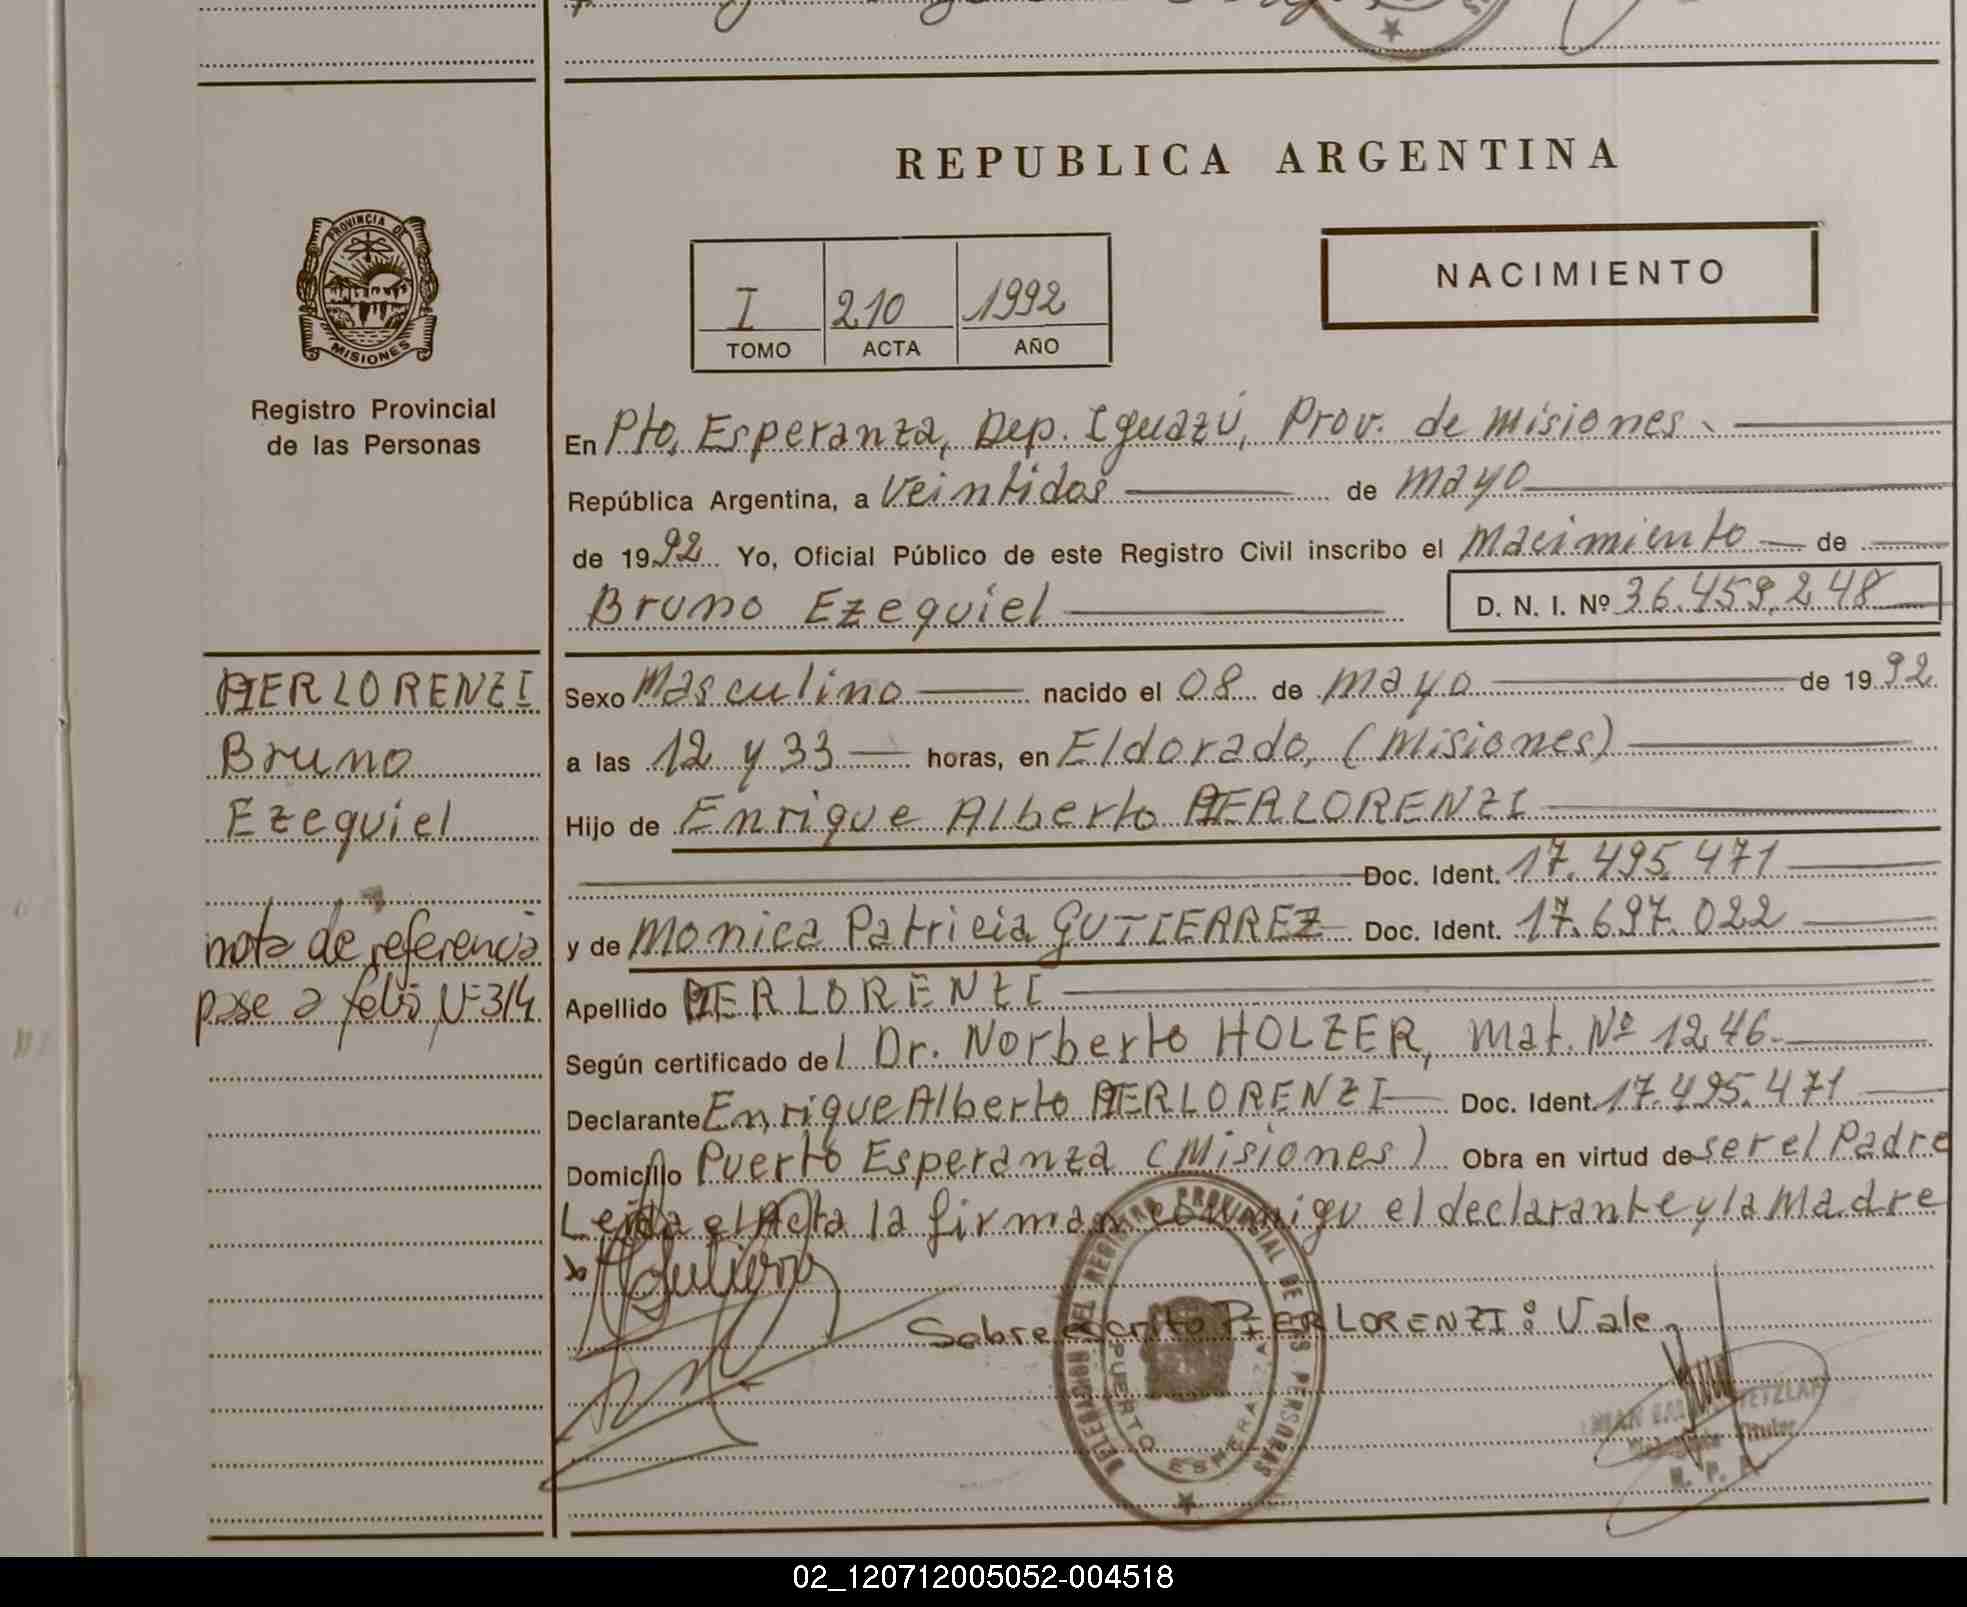 REPUBLICA ARGENTINA
PROVINCIA DE
MISIONES
Registro Provincial
de las Personas
I 210 1992
TOMO ACTA AÑO
NACIMIENTO
En Pto. Esperanza, Dep. Iguazú, Prov. de Misiones
República Argentina, a Veintidos de Mayo
de 1992 Yo, Oficial Público de este Registro Civil inscribo el Nacimiento de
Bruno Ezequiel D. N. I. Nº 36.459.248
PIERLORENZI
Bruno
Ezequiel
nota de referencia
pase a folio Nº 314
Sexo Masculino nacido el 08 de Mayo de 1992
a las 12 y 33 horas, en Eldorado, (Misiones)
Hijo de Enrique Alberto PIERLORENZI
Doc. Ident. 17.495.471
y de Monica Patricia GUTIERREZ Doc. Ident. 17.697.022
Apellido PIERLORENZI
Según certificado del Dr. Norberto HOLZER, Mat. Nº 1246
Declarante Enrique Alberto PIERLORENZI Doc. Ident. 17.495.471
Domicilio Puerto Esperanza (Misiones) Obra en virtud de ser el Padre
Leida el Acta la firman conmigo el declarante y la Madre
Sobreescrito PIERLORENZI: Vale
DELEGACION DEL REGISTRO PROVINCIAL DE LAS PERSONAS
PUERTO ESPERANZA
Titular
R. P. P.
02_120712005052-004518